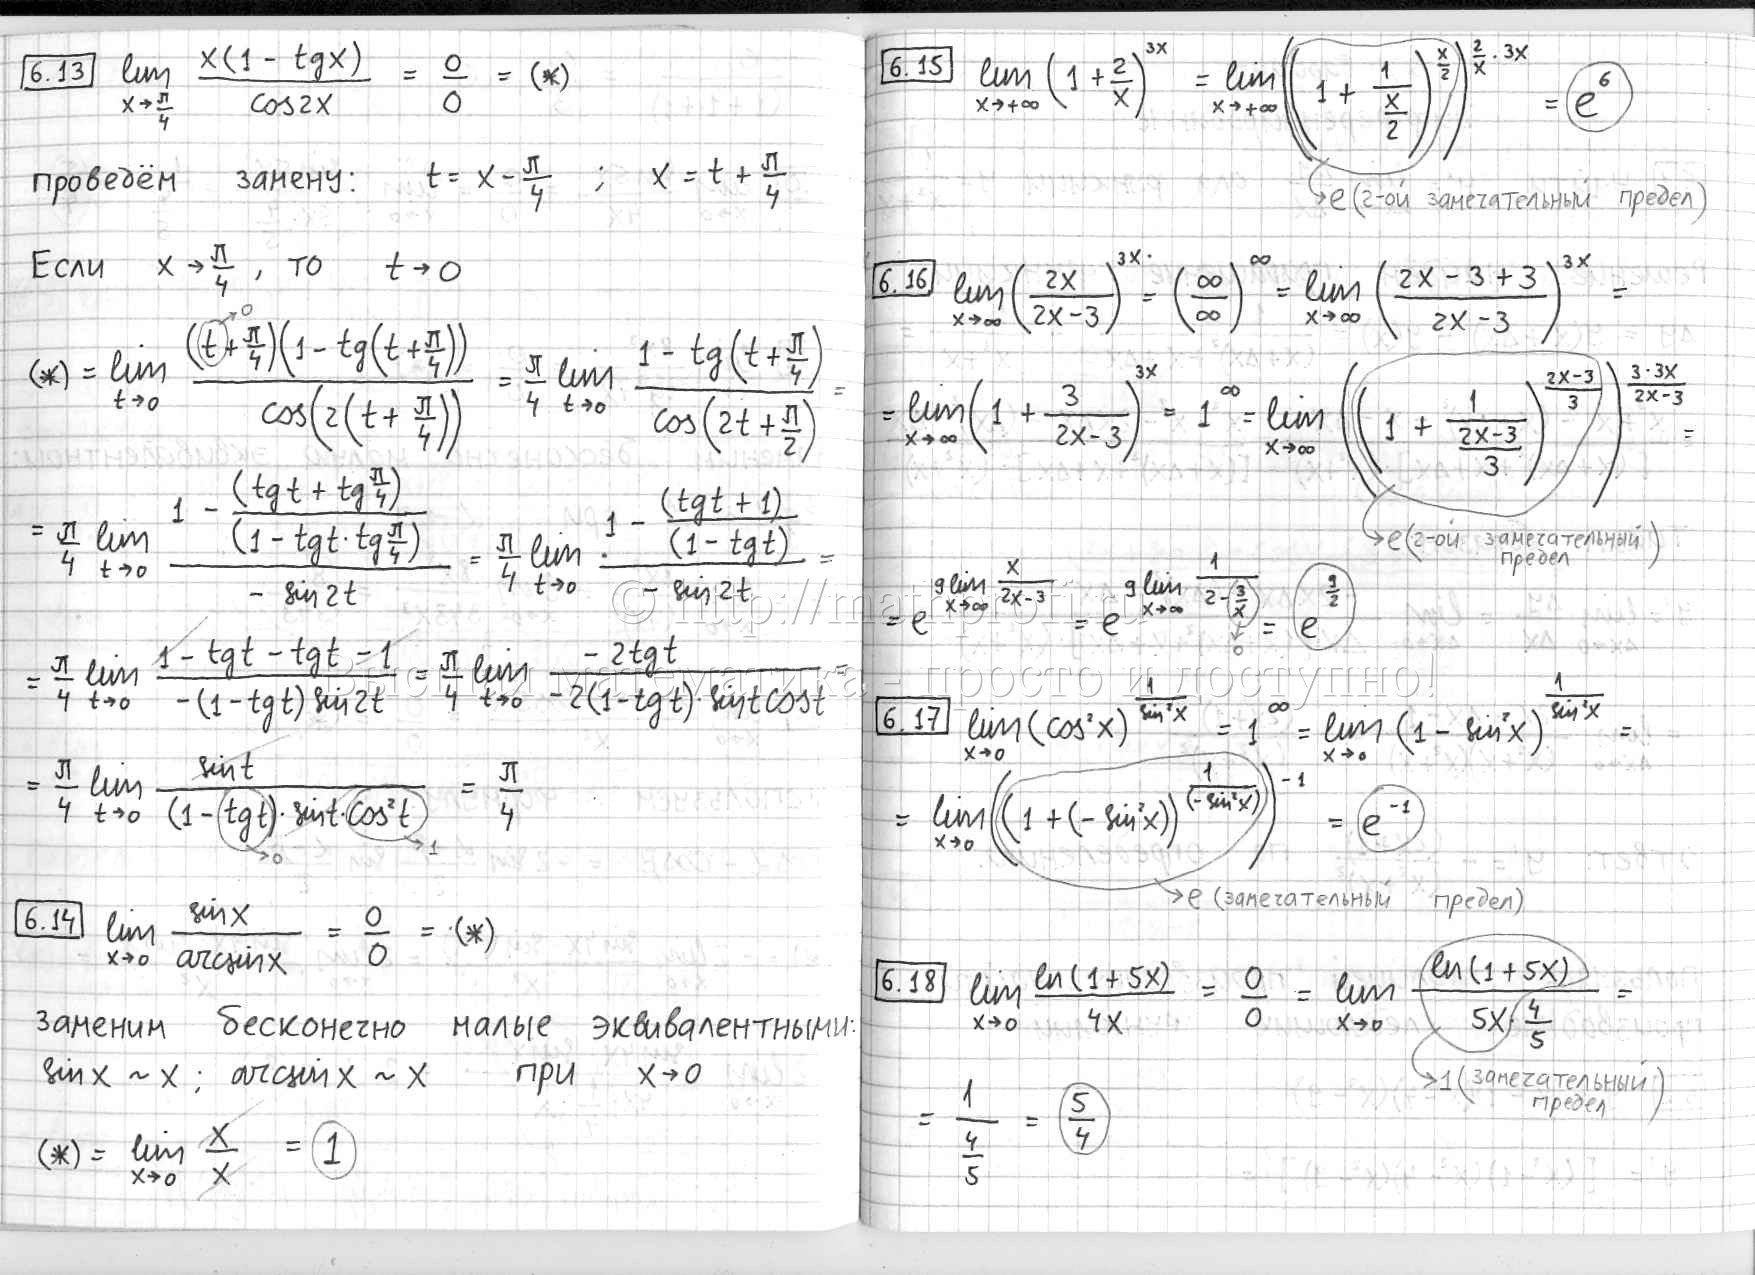 6.13 lim x→π/4 x(1 - tgx)/cos2x = 0/0 = (*)
проведём замену: t = x - π/4 ; x = t + π/4
Если x → π/4, то t → 0
(*) = lim t→0 (t + π/4)(1 - tg(t + π/4))/cos(2(t + π/4)) = π/4 lim t→0 (1 - tg(t + π/4))/cos(2t + π/2) =
= π/4 lim t→0 (1 - (tgt + tg π/4)/(1 - tgt·tg π/4))/(- sin2t) = π/4 lim t→0 (1 - (tgt + 1)/(1 - tgt))/(- sin2t) =
= π/4 lim t→0 (1 - tgt - tgt - 1)/(-(1 - tgt) sin2t) = π/4 lim t→0 (-2tgt)/(-2(1 - tgt)·sint cost) =
= π/4 lim t→0 sint/((1 - tgt)·sint·cos²t) = π/4
→0 →1
6.14 lim x→0 sinx/arcsinx = 0/0 = (*)
Заменим бесконечно малые эквивалентными:
sinx ~ x; arcsinx ~ x при x→0
(*) = lim x→0 x/x = 1
6.15 lim x→+∞ (1 + 2/x)^(3x) = lim x→+∞ ((1 + 1/(x/2))^(x/2))^(2/x · 3x) = e^6
→ e (2-ой замечательный предел)
6.16 lim x→∞ (2x/(2x-3))^(3x) = (∞/∞)^∞ = lim x→∞ ((2x - 3 + 3)/(2x - 3))^(3x) =
= lim x→∞ (1 + 3/(2x-3))^(3x) = 1^∞ = lim x→∞ ((1 + 1/((2x-3)/3))^((2x-3)/3))^(3·3x/(2x-3)) =
→ e (2-ой замечательный предел)
= e^(9 lim x→∞ x/(2x-3)) = e^(9 lim x→∞ 1/(2 - 3/x)) = e^(9/2)
→0
© http://mathprofi.ru
Высшая математика - просто и доступно!
6.17 lim x→0 (cos²x)^(1/sin²x) = 1^∞ = lim x→0 (1 - sin²x)^(1/sin²x) =
= lim x→0 ((1 + (-sin²x))^(1/(-sin²x)))^(-1) = e^(-1)
→ e (замечательный предел)
6.18 lim x→0 ln(1+5x)/4x = 0/0 = lim x→0 ln(1+5x)/(5x·4/5) =
→ 1 (замечательный предел)
= 1/(4/5) = 5/4